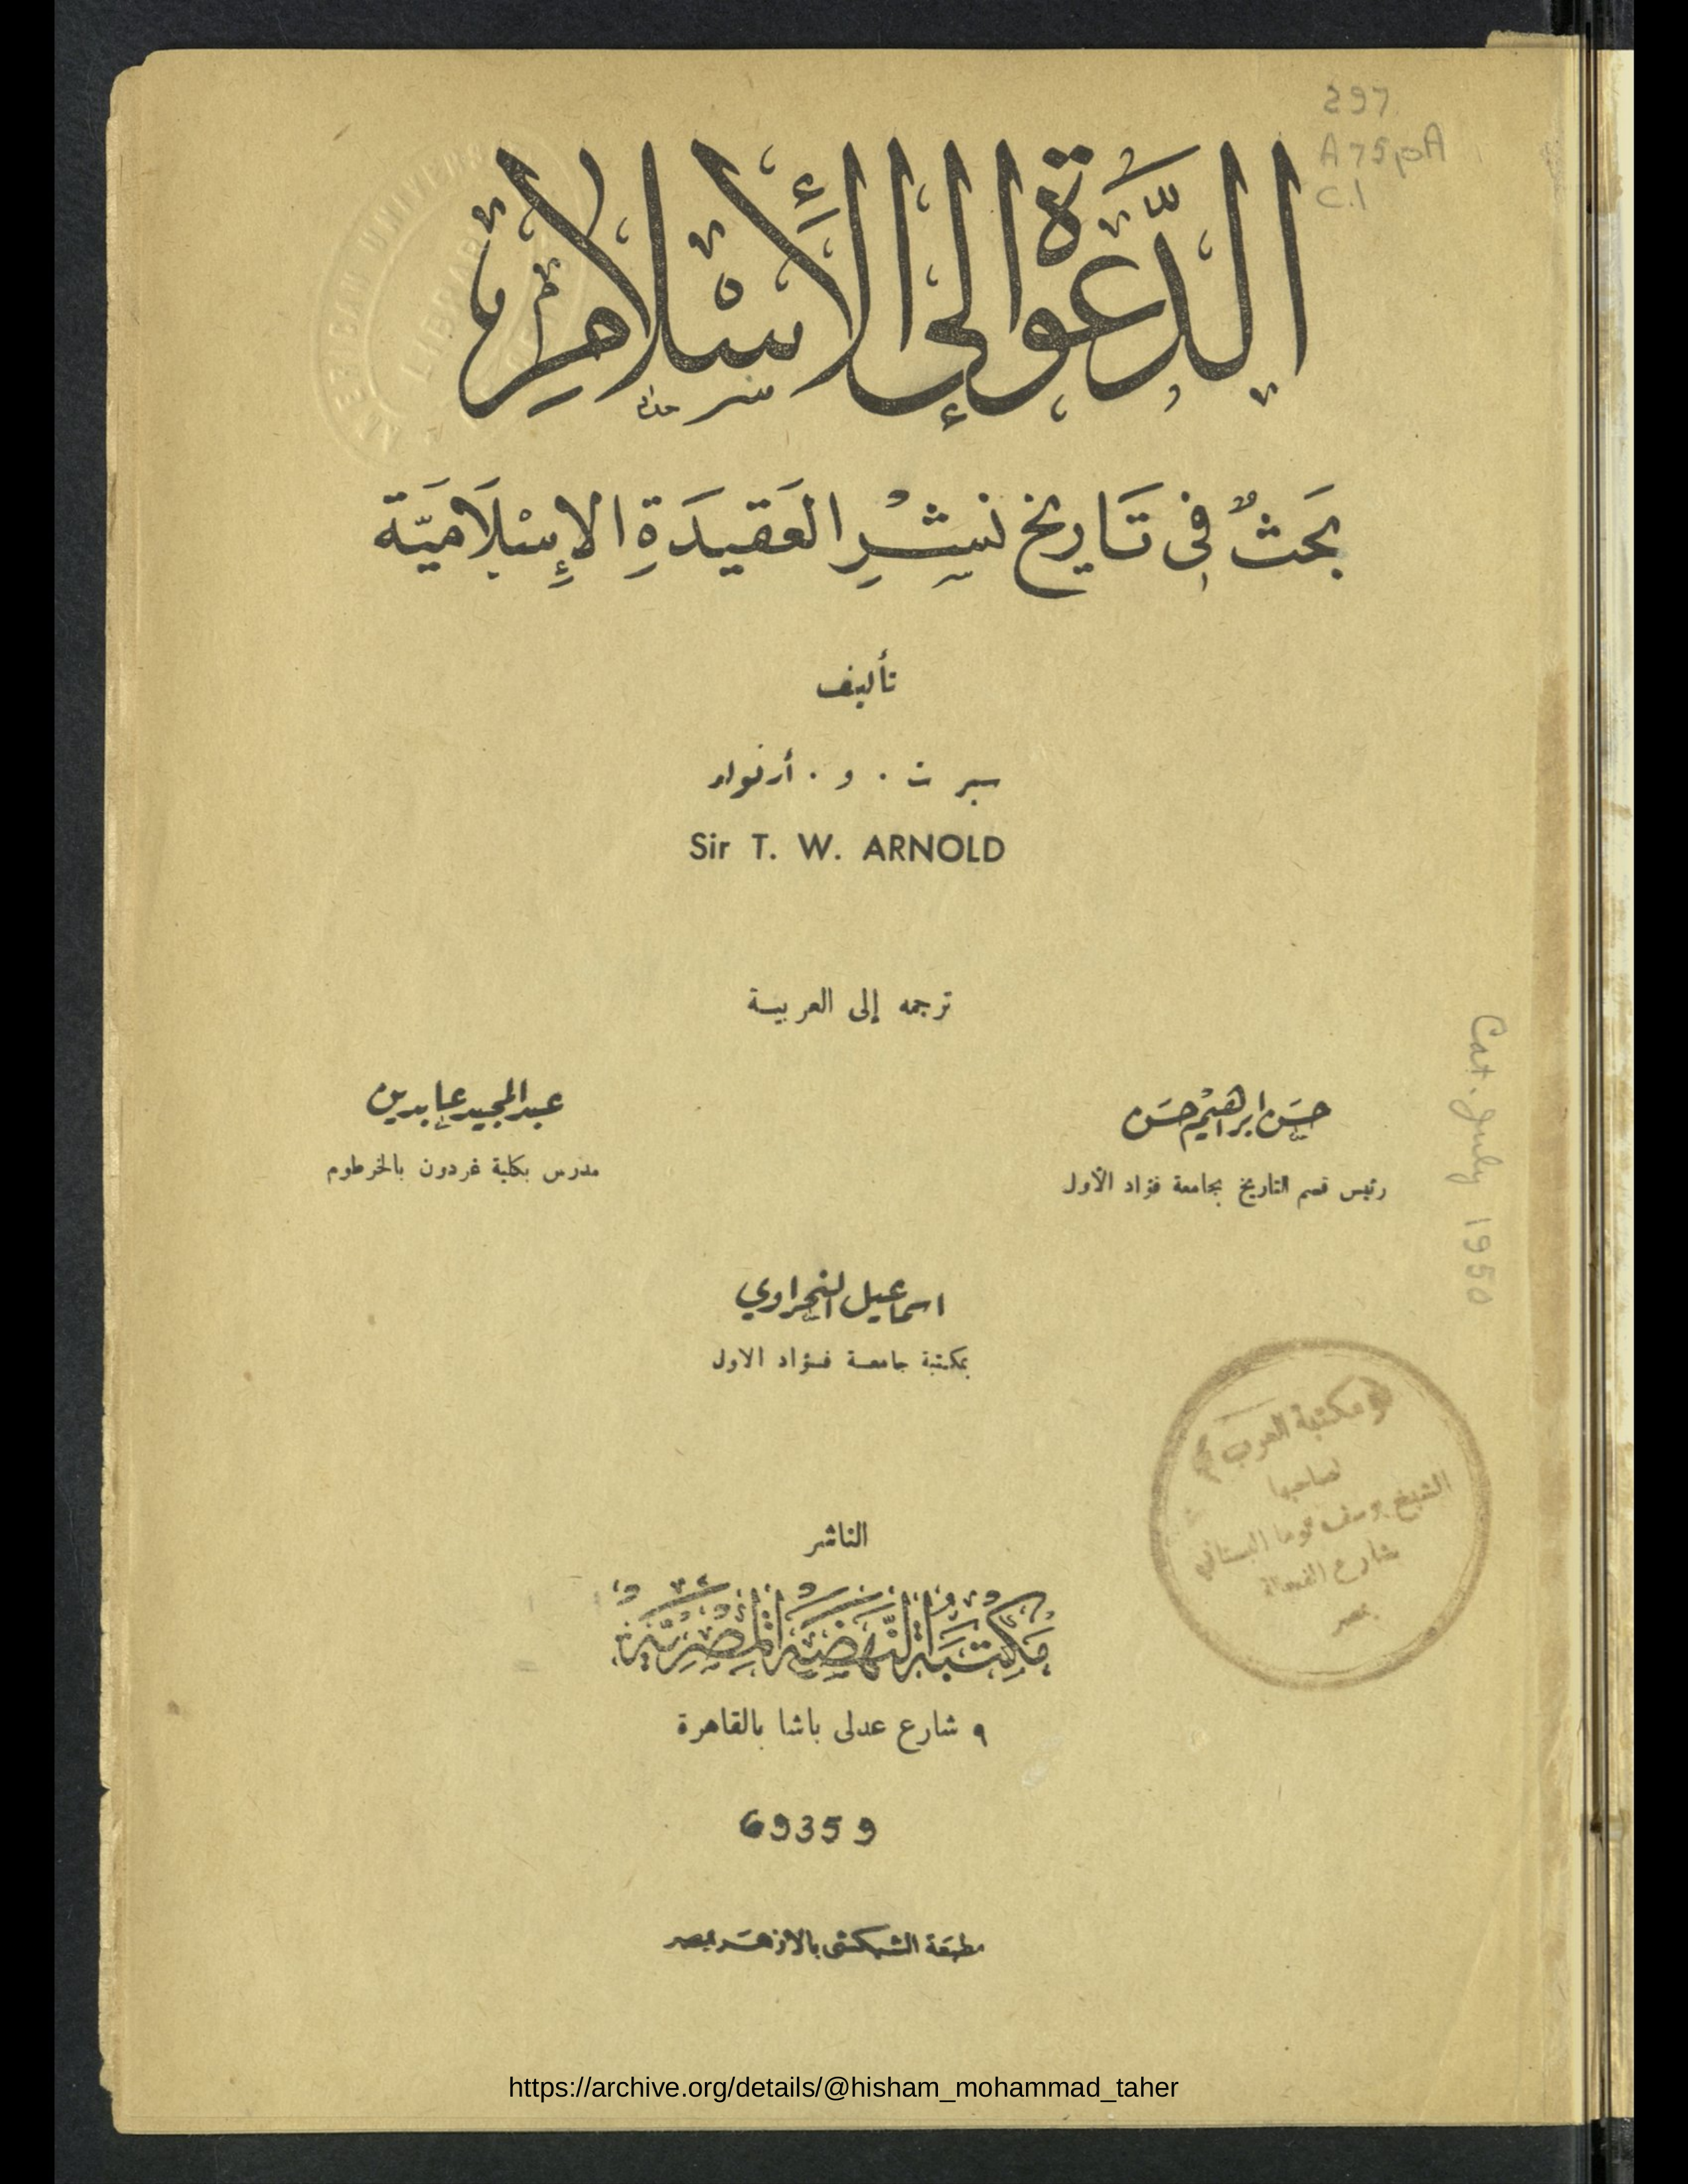 297
A75pA
C.1
AMERICAN UNIVERS
LIBRARY
الدَّعْوَةُ إِلَى الإِسْلَامِ
بَحثٌ فِي تَاريخ نَشْرِ العَقيدَةِ الإِسْلَاميَّة
تأليف
سير ت . و . أرنولد
Sir T. W. ARNOLD
ترجمه إلى العربية
حسَن ابراهيم حسَن
رئيس قسم التاريخ بجامعة فؤاد الأول
عبد المجيد عابدين
مدرس بكلية غردون بالخرطوم
Cat. July 1950
اسماعيل النحراوي
بمكتبة جامعة فؤاد الاول
مكتبة العرب
لصاحبها
الشيخ يوسف توما البستاني
شارع الفجالة
بمصر
الناشر
مَكتَبَة النَّهضَة المِصْريَّة
٩ شارع عدلى باشا بالقاهرة
69359
مطبعَة الشبكشى بالأزهَر بمصر
https://archive.org/details/@hisham_mohammad_taher